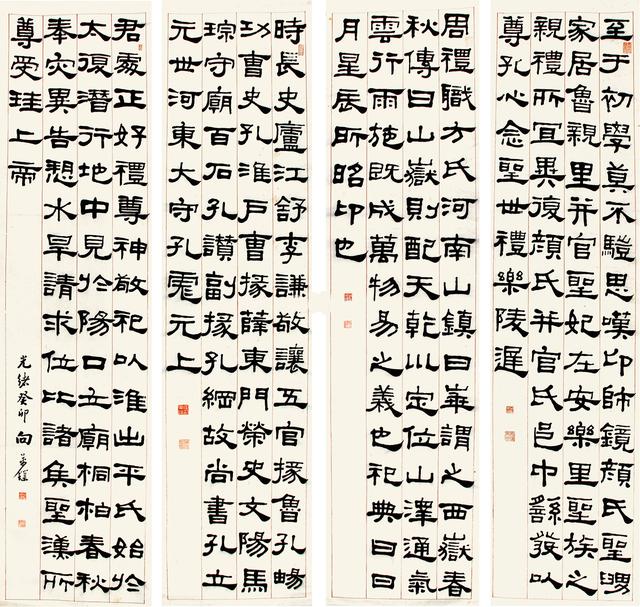 至于初學莫不驩思嘆卬師鏡顏氏聖舅
家居魯親里并官聖妃在安樂里聖族之
親禮所宜異復顏氏并官氏邑中繇發以
尊孔心念聖世禮樂陵遲
周禮職方氏河南山鎮曰華謂之西嶽春
秋傳曰山嶽則配天乾川定位山澤通氣
雲行雨施既成萬物易之義也祀典曰日
月星辰所昭卬也
時長史廬江舒李謙敬讓五官掾魯孔暢
功曹史孔淮戶曹掾薛東門榮史文陽馬
琮守廟百石孔讚副掾孔綱故尚書孔立
元世河東大守孔彪元上
君處正好禮尊神敬祀以淮出平氏始於
太復潛行地中見於陽口立廟桐柏春秋
奉灾異告愬水旱請求位比諸侯聖漢所
尊受珪上帝
光緒癸卯向